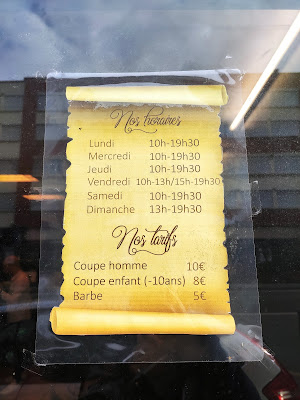 Nos horaires
Lundi 10h-19h30
Mercredi 10h-19h30
Jeudi 10h-19h30
Vendredi 10h-13h/15h-19h30
Samedi 10h-19h30
Dimanche 13h-19h30
Nos tarifs
Coupe homme 10€
Coupe enfant (-10ans) 8€
Barbe 5€